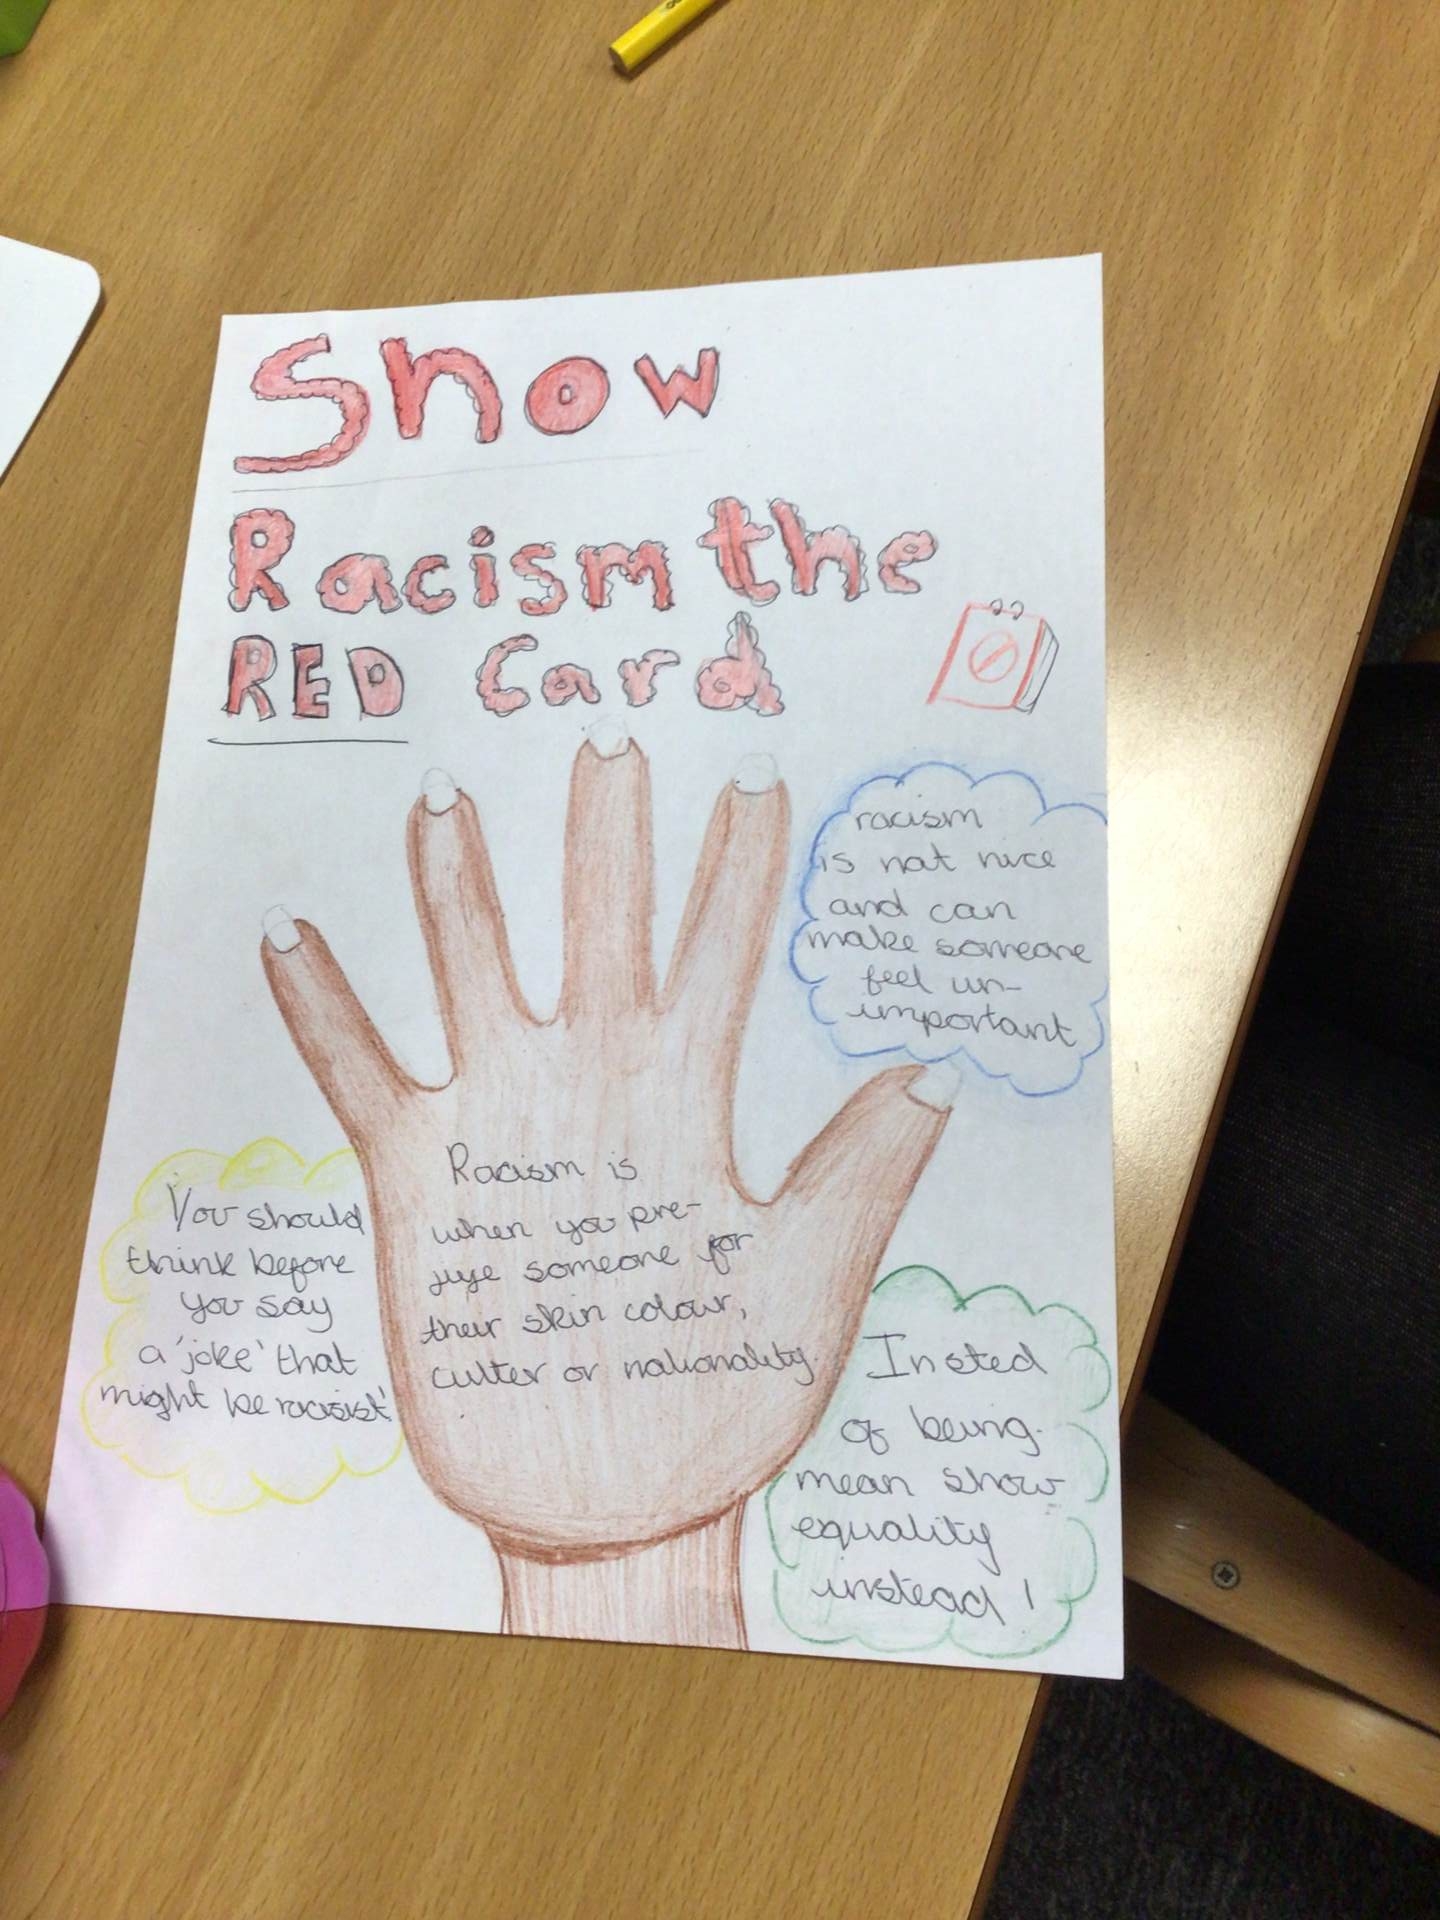 Show
Racism the
RED Card
racism
is not nice
and can
make someone
feel un-
important
Racism is
when you pre-
juje someone for
their skin colour,
culter or nationality.
You should
think before
you say
a 'joke' that
might be racisist'
Insted
of being
mean show
equality
instead!